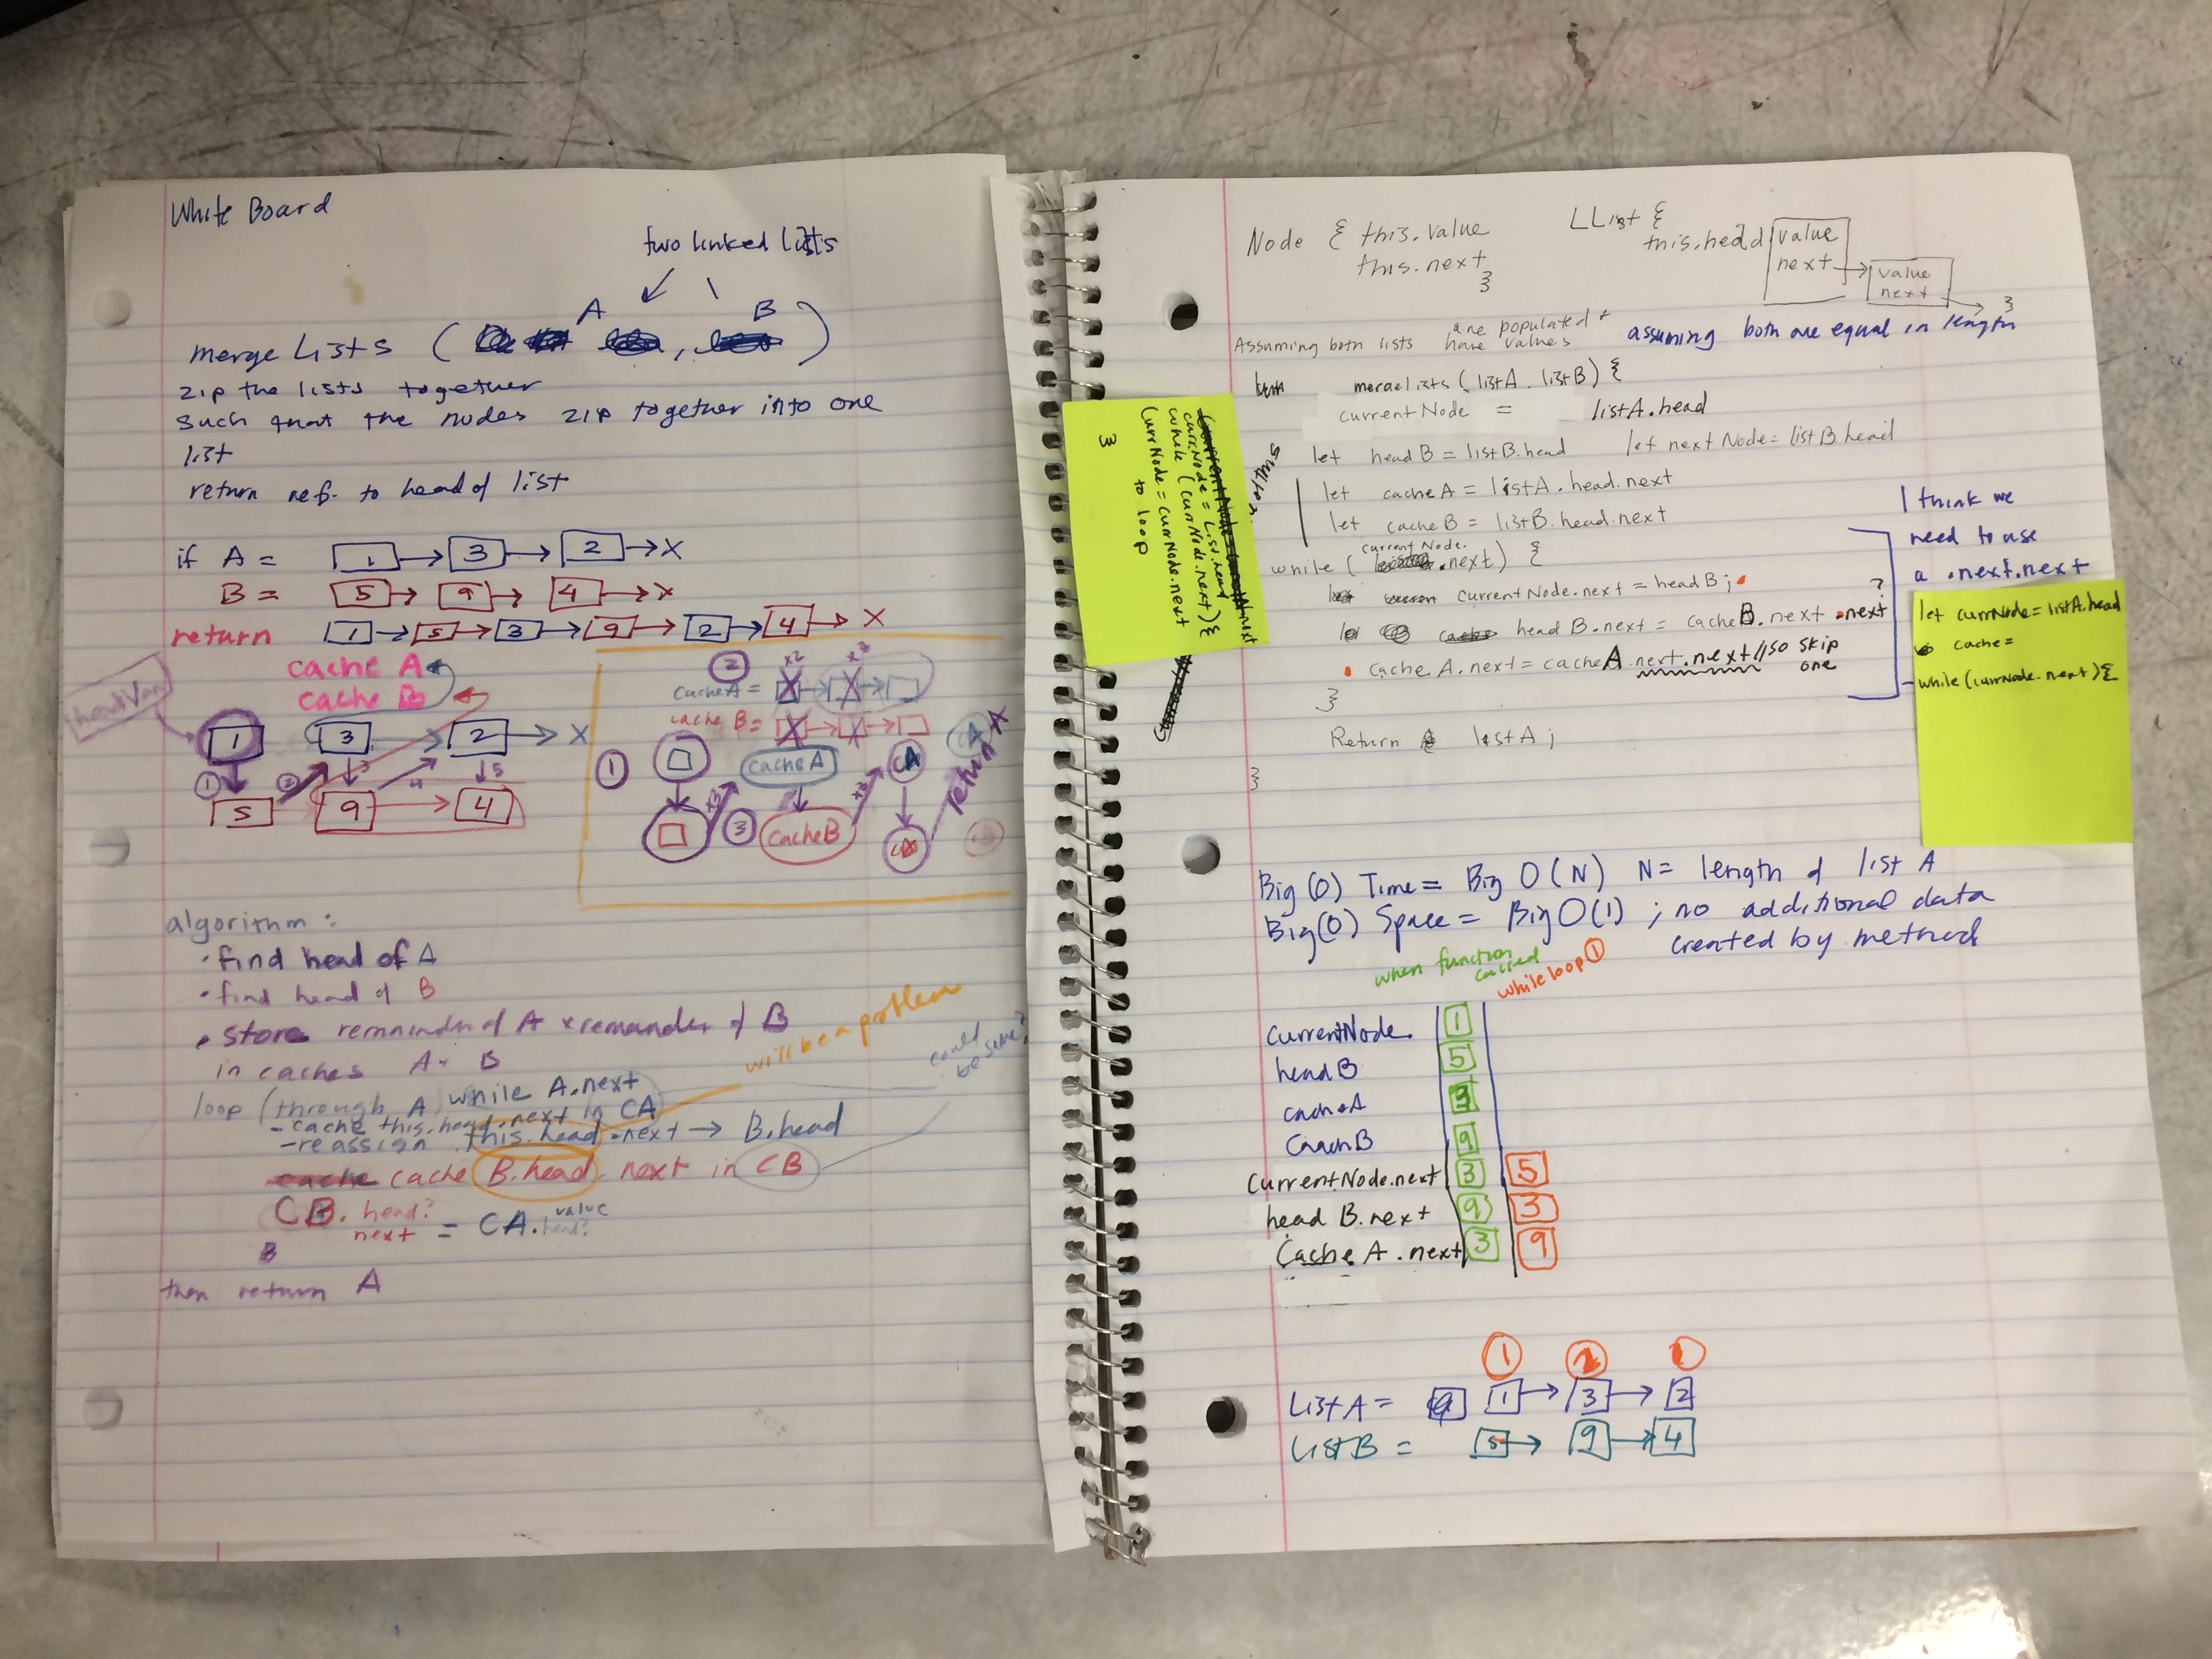 White Board
two linked lists
A B
mergeLists ( , )
zip the lists together
such that the nodes zip together into one
list
return ref. to head of list
if A = 1 → 3 → 2 → X
B = 5 → 9 → 4 → X
return 1 → 5 → 3 → 9 → 2 → 4 → X
cache A
cache B
1 3 2 → X
① ② 3 4 5
5 9 → 4
②
cache A =
cache B =
①
cache A
③
cache B
CA
CA
return A
algorithm:
· find head of A
· find head of B
· store remainder of A + remainder of B
in caches A + B
loop (through A) while A.next
- cache this.head.next in CA
- reassign this.head.next → B.head
will be a problem
cache B.head.next in CB
CB.head?
next = CA.head?
value
B
then return A
Node { this.value
this.next }
LList {
this.head
value
next →
value
next →
}
Assuming both lists are populated +
have values
assuming both are equal in length
mergeLists (listA, listB) {
currentNode = listA.head
let headB = listB.head
let nextNode = listB.head
let cacheA = listA.head.next
let cacheB = listB.head.next
while (currentNode.next) {
currentNode.next = headB;
headB.next = cacheB.next.next ?
cacheA.next = cacheA.next.next // so skip
one
}
Return listA;
}}
I think we
need to use
a .next.next
let currNode = listA.head
cache =
while (currNode.next) {
currNode = List.head
while (currNode.next) {
currNode = currNode.next
to loop
Big(O) Time = Big O(N) N = length of list A
Big(O) Space = Big O(1) ; no additional data
created by method
when function
called
while loop ①
currentNode 1
headB 5
cacheA 3
CacheB 9
currentNode.next 3 5
headB.next 9 3
CacheA.next 3 9
① ② 1
ListA = 1 → 3 → 2
ListB = 5 → 9 → 4